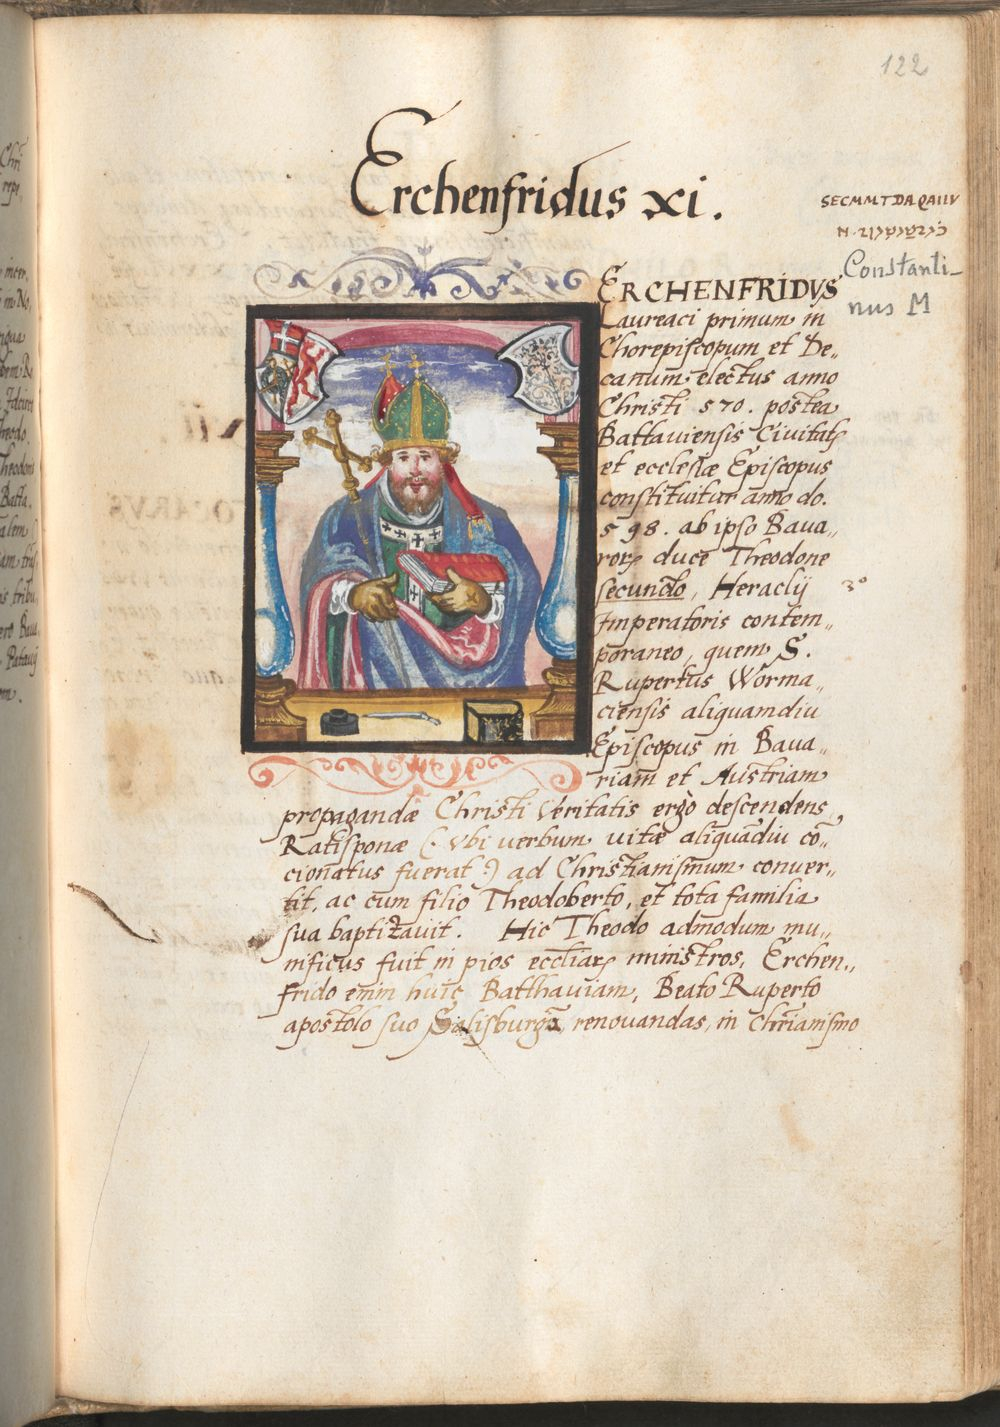 122
Erchenfridus xi.
SECMMTDAQAIIIV
Constanti-
nus M
ERCHENFRIDVS
Laureaci primum in
Chorepiscopum et De„
canum electus anno
Christi 570. postea
Battauiensis Ciuitatꝭ
et ecclesiæ Episcopus
constituitur anno do.
598. ab ipso Baua„
roꝝ duce Theodone
secundo, Heraclij
Imperatoris contem„
poraneo, quem S.
Rupertus Worma„
ciensis aliquamdiu
Episcopus in Baua„
riam et Austriam
propagandæ Christi Veritatis ergò descendens,
Ratisponæ (: Vbi verbum vitæ aliquādiu cō„
cionatus fuerat :) ad Christianismum conuer„
tit, ac cum filio Theodoberto, et tota familia
sua baptizauit. Hic Theodo admodum mu„
nificus fuit in pios eccliaꝝ ministros, Erchen„
frido enim huic Batthauiam, Beato Ruperto
apostolo suo Salisburgā, renouandas, in Chrianismo